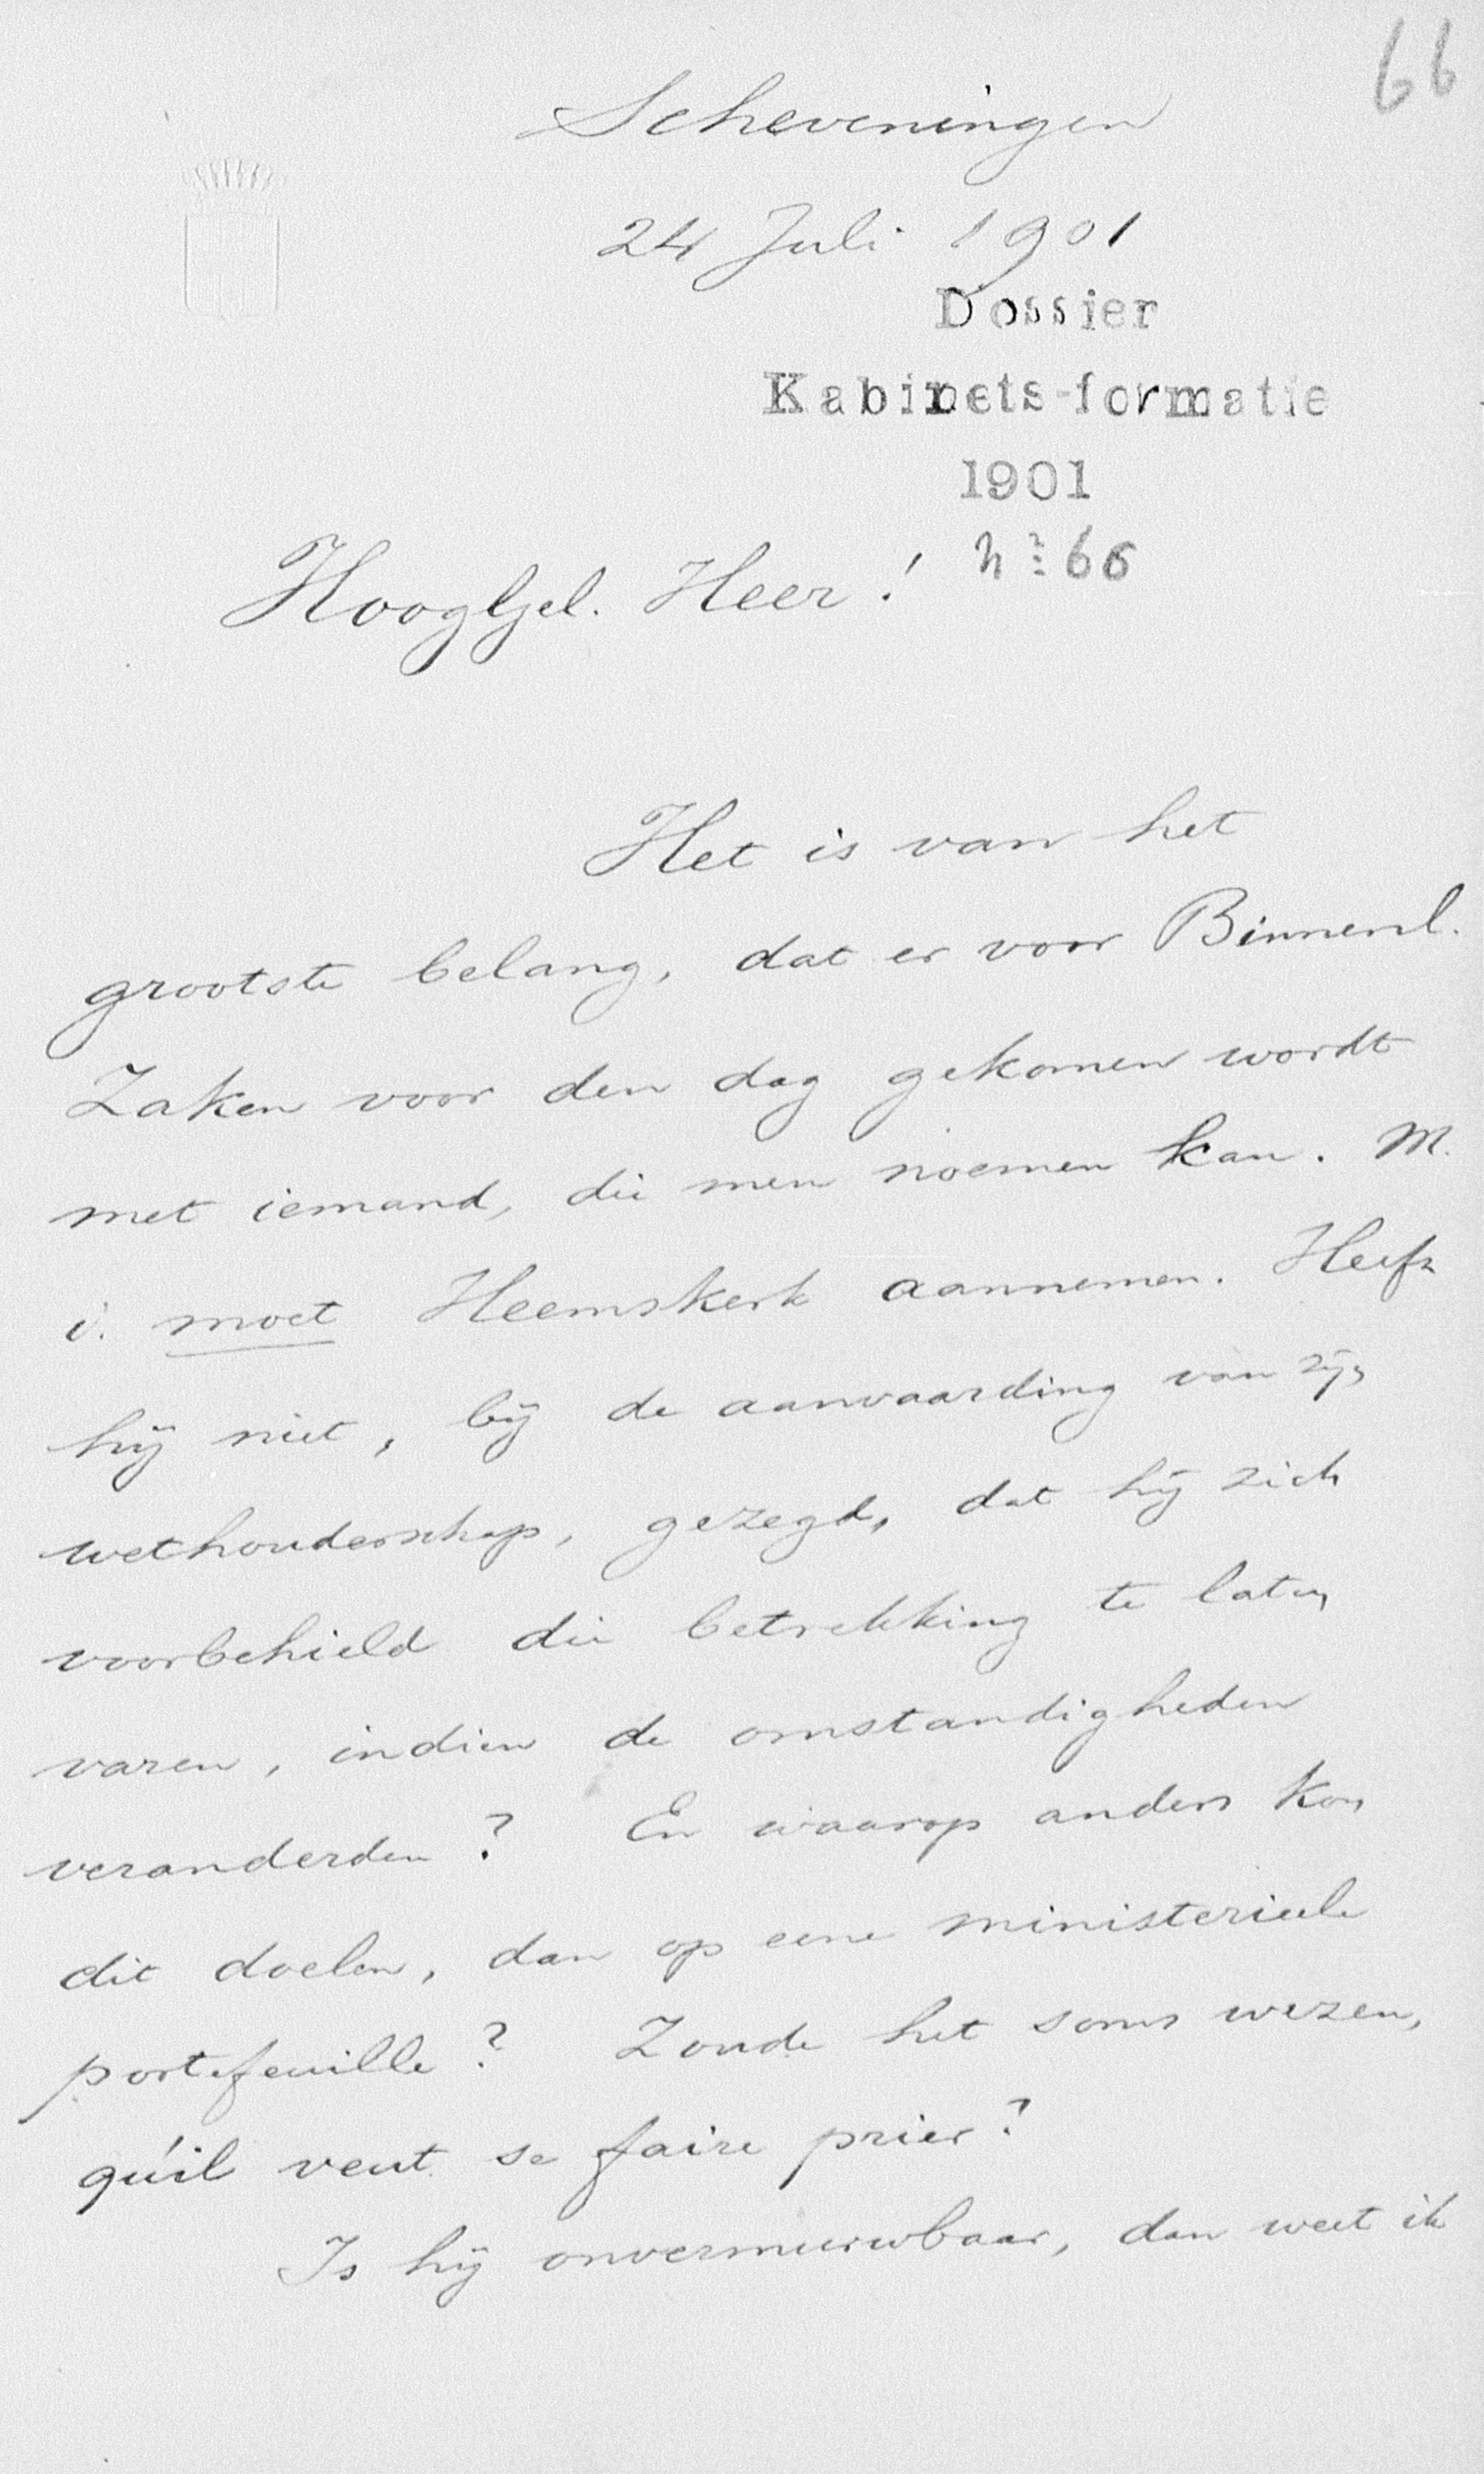 66
Scheveningen
24 Juli 1901
Dossier
Kabinets-formatie
1901
nº 66
Hooggel. Heer!
Het is van het
grootste belang, dat er voor Binnenl.
Zaken voor den dag gekomen wordt
met iemand, die men noemen kan. M.
i. moet Heemskerk aannemen. Heeft
hij niet, bij de aanvaarding van zijn
wethouderschap, gezegd, dat hij zich
voorbehield die betrekking te laten
varen, indien de omstandigheden
veranderden? En waarop anders kon
dit doelen, dan op eene ministerieele
portefeuille? Zoude het soms wezen,
qu'il veut se faire prier?
Is hij onvermurwbaar, dan weet ik